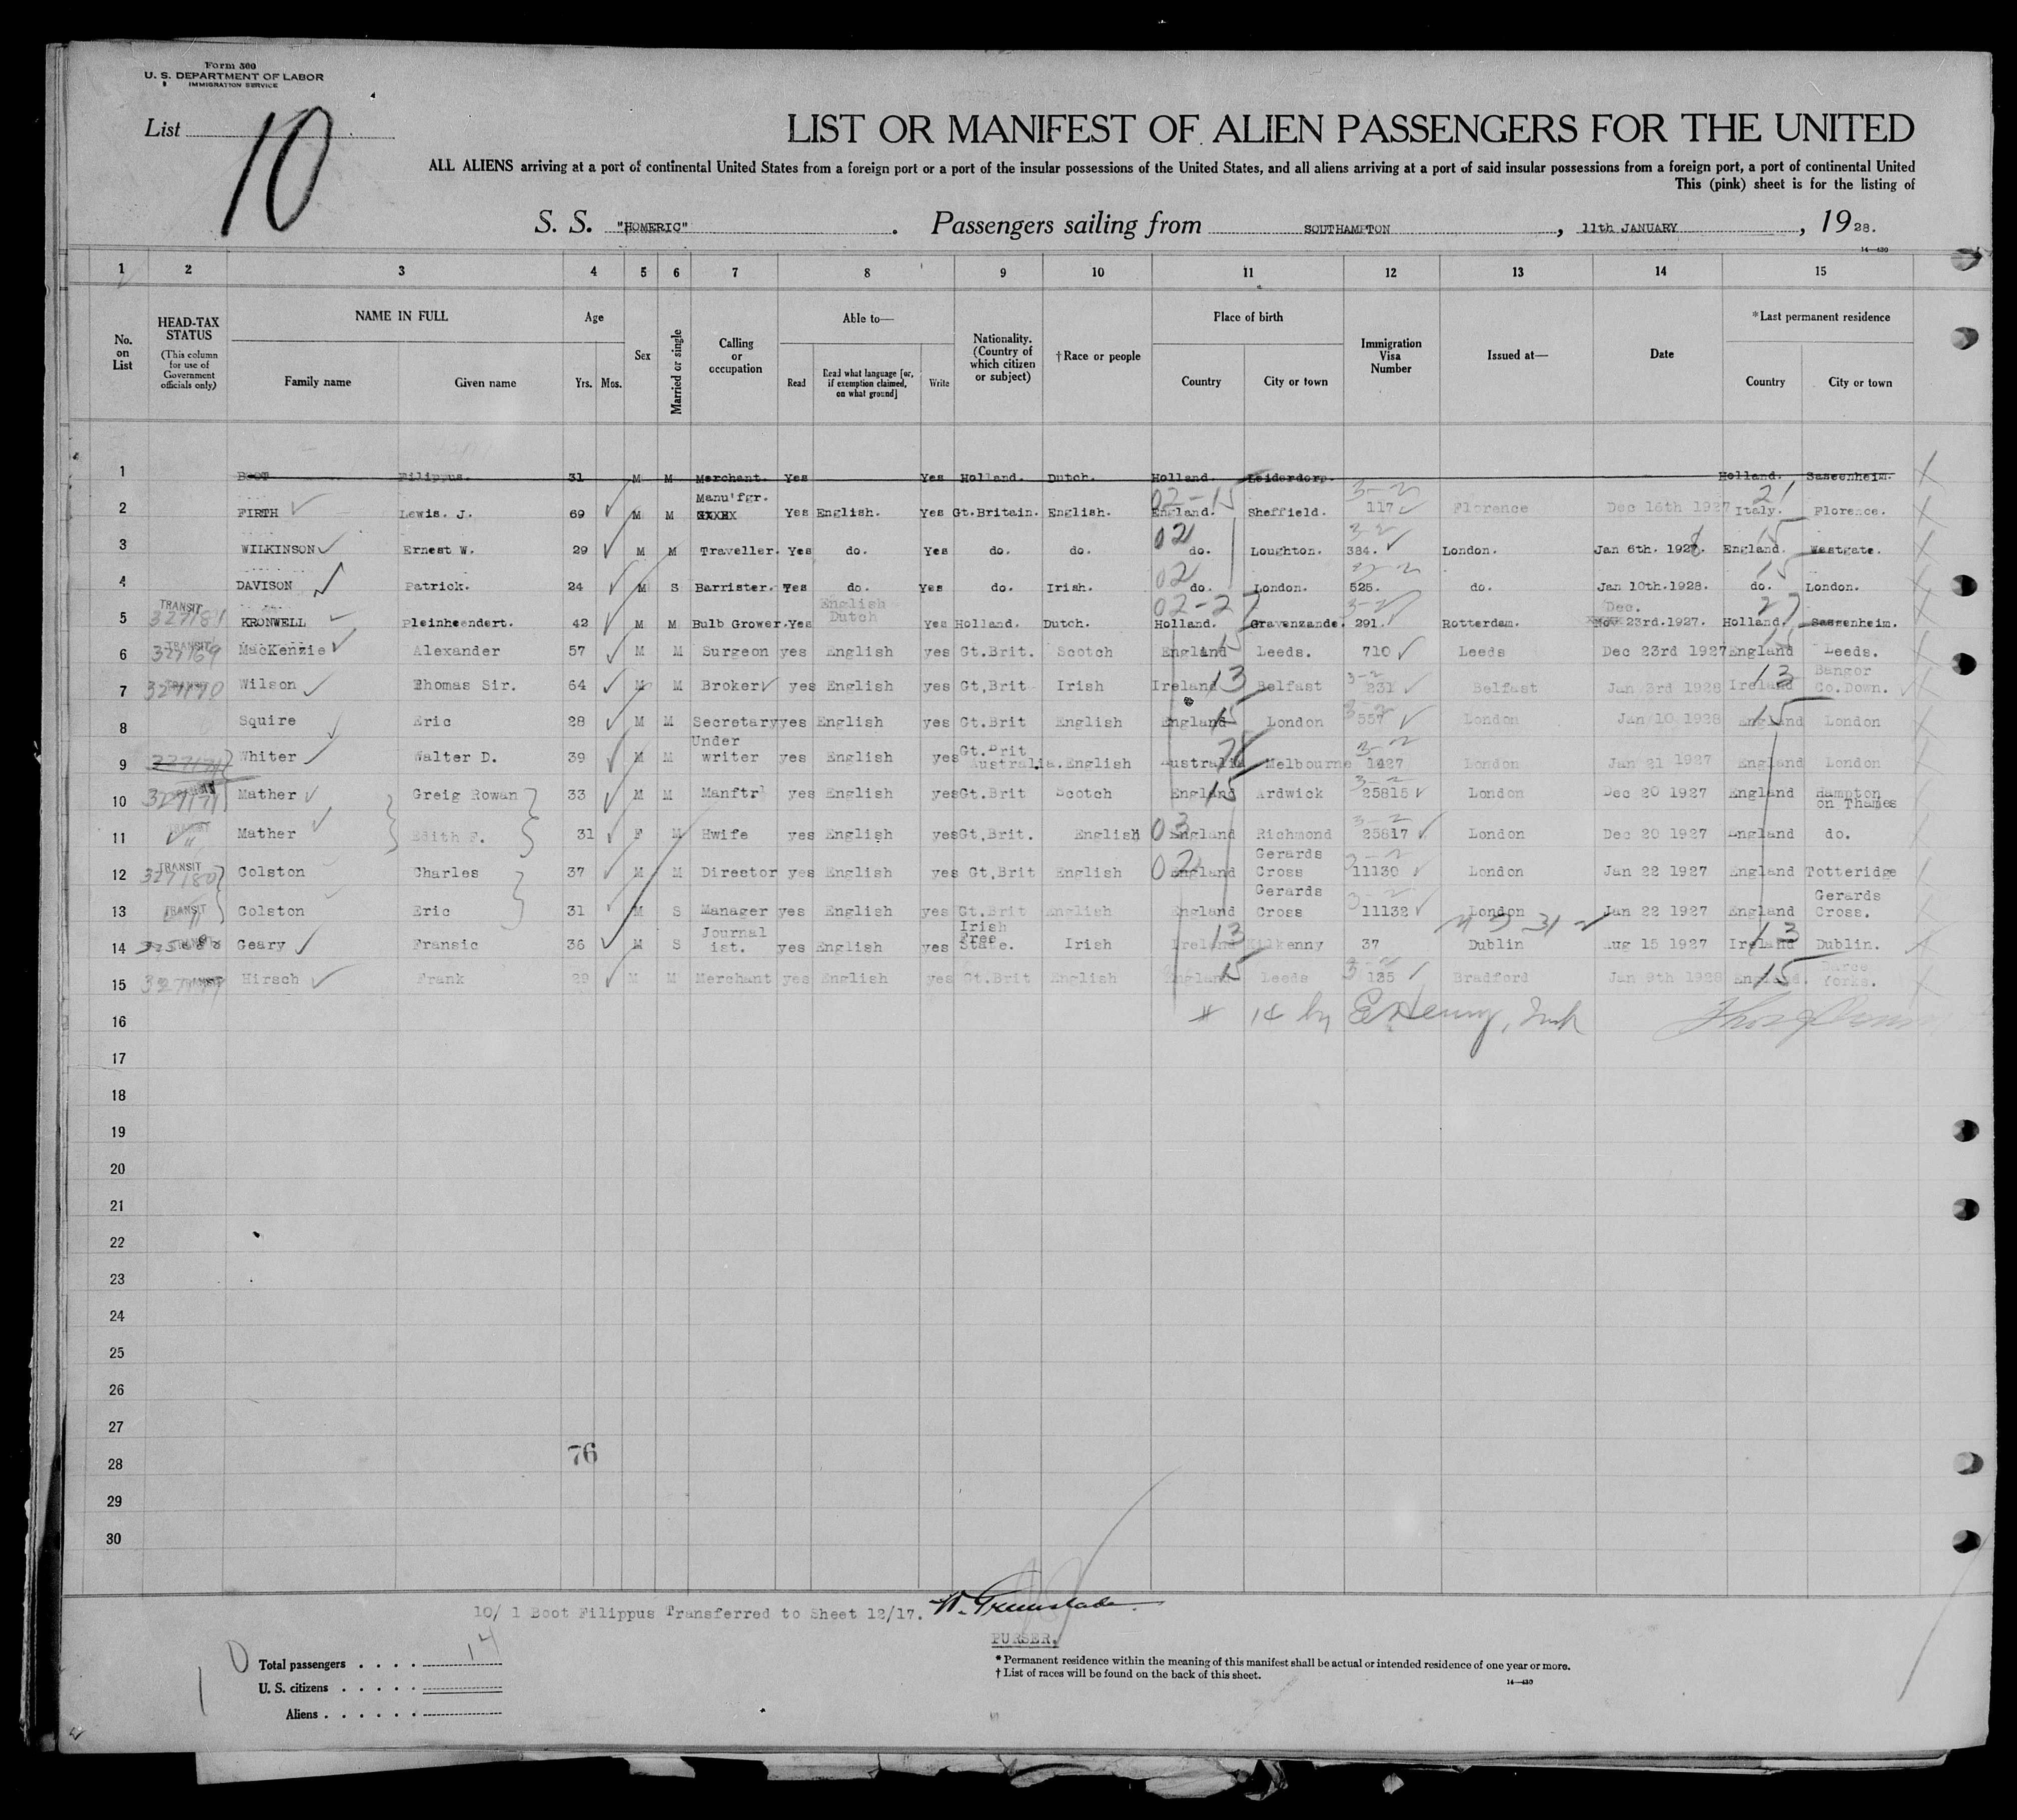 Form 500
U. S. DEPARTMENT OF LABOR
IMMIGRATION SERVICE
List 10
LIST OR MANIFEST OF ALIEN PASSENGERS FOR THE UNITED
ALL ALIENS arriving at a port of continental United States from a foreign port or a port of the insular possessions of the United States, and all aliens arriving at a port of said insular possessions from a foreign port, a port of continental United
This (pink) sheet is for the listing of
S. S. "HOMERIC". Passengers sailing from SOUTHAMPTON, 11th JANUARY, 1928.
14—430
1 2 3 4 5 6 7 8 9 10 11 12 13 14 15
No. on List
HEAD-TAX STATUS (This column for use of Government officials only)
NAME IN FULL Family name Given name
Age Yrs. Mos.
Sex
Married or single
Calling or occupation
Able to— Read Read what language [or, if exemption claimed, on what ground] Write
Nationality. (Country of which citizen or subject)
†Race or people
Place of birth Country City or town
Immigration Visa Number
Issued at—
Date
*Last permanent residence Country City or town
1 BOOT Filippus. 31 M M Merchant. Yes Yes Holland. Dutch. Holland. Leiderdorp. Holland. Sassenheim.
2 FIRTH Lewis. J. 69 M M Manu'fgr. Yes English. Yes Gt.Britain. English. 02-15 England. Sheffield. 3-2 117 Florence Dec 16th 1927 21 Italy. Florence.
3 WILKINSON Ernest W. 29 M M Traveller. Yes do. Yes do. do. 02 do. Loughton. 3-2 384. London. Jan 6th. 1928. 15 England. Westgate.
4 DAVISON Patrick. 24 M S Barrister. Yes do. Yes do. Irish. 02 do. London. 525. do. Jan 10th.1928. 15 do. London.
5 TRANSIT 327181 KRONWELL Pleinheendert. 42 M M Bulb Grower. Yes English Dutch Yes Holland. Dutch. 02-27 Holland. Gravenzande. 3-2 291. Rotterdam. Dec. Nov 23rd.1927. 27 Holland. Sassenheim.
6 TRANSIT 327169 MacKenzie Alexander 57 M M Surgeon yes English yes Gt.Brit. Scotch England 15 Leeds. 710 Leeds Dec 23rd 1927 England 15 Leeds.
7 327170 Wilson Thomas Sir. 64 M M Broker yes English yes Gt,Brit Irish Ireland 13 Belfast 3-2 231 Belfast Jan 3rd 1928 Ireland 13 Bangor Co.Down.
8 Squire Eric 28 M M Secretary yes English yes Gt.Brit English England 15 London 3-2 557 London Jan 10 1928 England 15 London
9 327171 Whiter Walter D. 39 M M Under writer yes English yes Gt.Brit Australia. English Australia Melbourne 3-2 1427 London Jan 21 1927 England London
10 327171 Mather Greig Rowan 33 M M Manftr yes English yes Gt.Brit Scotch England 15 Ardwick 3-2 25815 London Dec 20 1927 England Hampton on Thames
11 TRANSIT " Mather Edith F. 31 F M Hwife yes English yes Gt,Brit. English 03 England Richmond 3-2 25817 London Dec 20 1927 England do.
12 TRANSIT 327180 Colston Charles 37 M M Director yes English yes Gt,Brit English 02 England Gerards Cross 3-2 11130 London Jan 22 1927 England Totteridge
13 TRANSIT Colston Eric 31 M S Manager yes English yes Gt.Brit English England Gerards Cross 3-2 11132 London Jan 22 1927 England Gerards Cross.
14 TRANSIT Geary Fransic 36 M S Journal ist. yes English yes Irish Free State. Irish Ireland 13 Kilkenny 37 Dublin Aug 15 1927 Ireland 13 Dublin.
15 TRANSIT Hirsch Frank 29 M M Merchant yes English yes Gt.Brit English England 15 Leeds 3-2 135 Bradford Jan 9th 1928 England. 15 Yorks.
16 # 14 by E Henry, Insp
17
18
19
20
21
22
23
24
25
26
27
28 76
29
30
10/ 1 Boot Filippus Transferred to Sheet 12/17.
PURSER.
Total passengers . . . . 14
U. S. citizens . . . . .
Aliens . . . . . .
* Permanent residence within the meaning of this manifest shall be actual or intended residence of one year or more.
† List of races will be found on the back of this sheet.
14—430